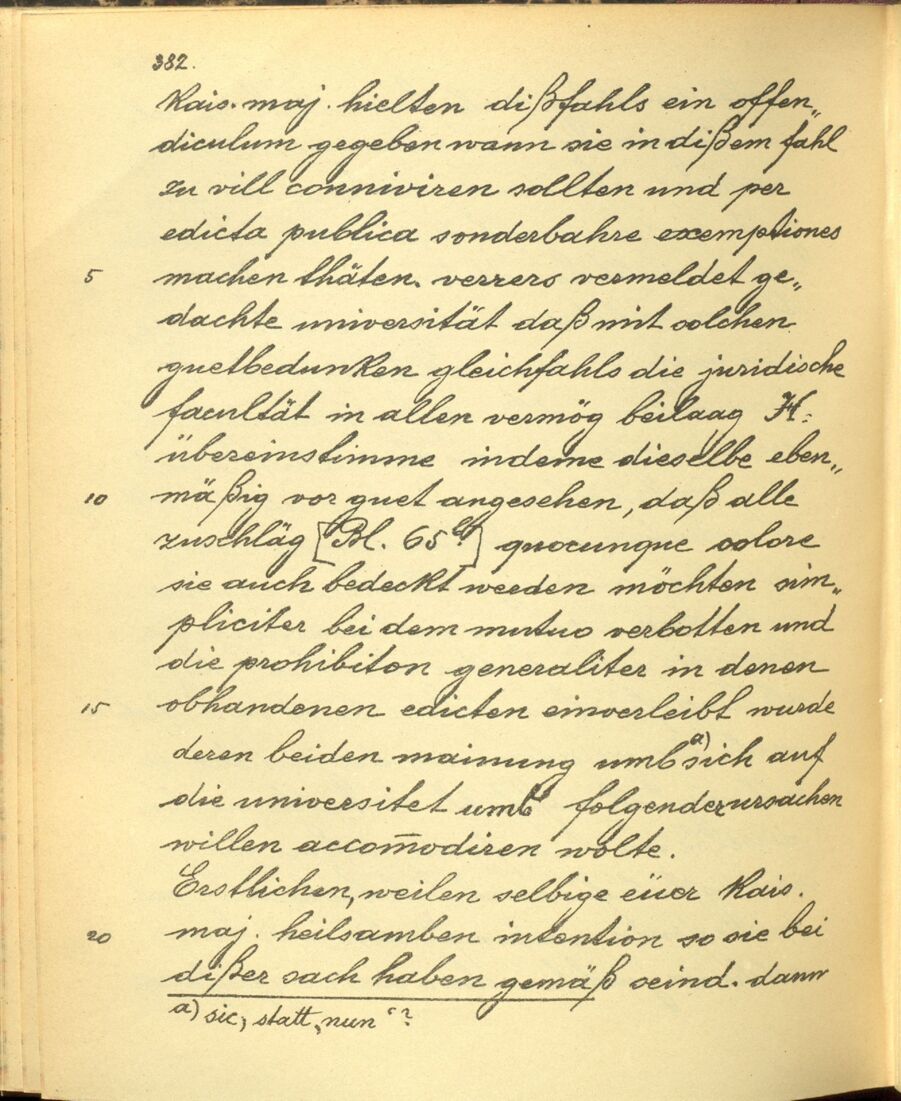 382.
Kais. maj. hielten dißfahls ein offen„
diculum gegeben wann sie in dißem fahl
zu vill conniviren sollten und per
edicta publica sonderbahre exemptiones
5 machen thäten. verrers vermeldet ge„
dachte universität daß mit solchen
guetbedunken gleichfahls die juridische
facultät in allen vermög beilaag H:
übereinstimme indeme dieselbe eben„
10 mäßig vor guet angesehen, daß alle
zuschläg [Bl. 65b:] quocunque colore
sie auch bedeckt werden möchten sim„
pliciter bei dem mutuo verbotten und
die prohibiton generaliter in denen
15 obhandenen edicten einverleibt wurde
deren beiden mainung umb a) sich auf
die universitet umb folgender ursachen
willen accom̄odiren wolte.
Erstlichen, weilen selbige eüer Kais.
20 maj. heilsamben intention so sie bei
dißer sach haben gemäß seind. dann
a) sic, statt „nun“?